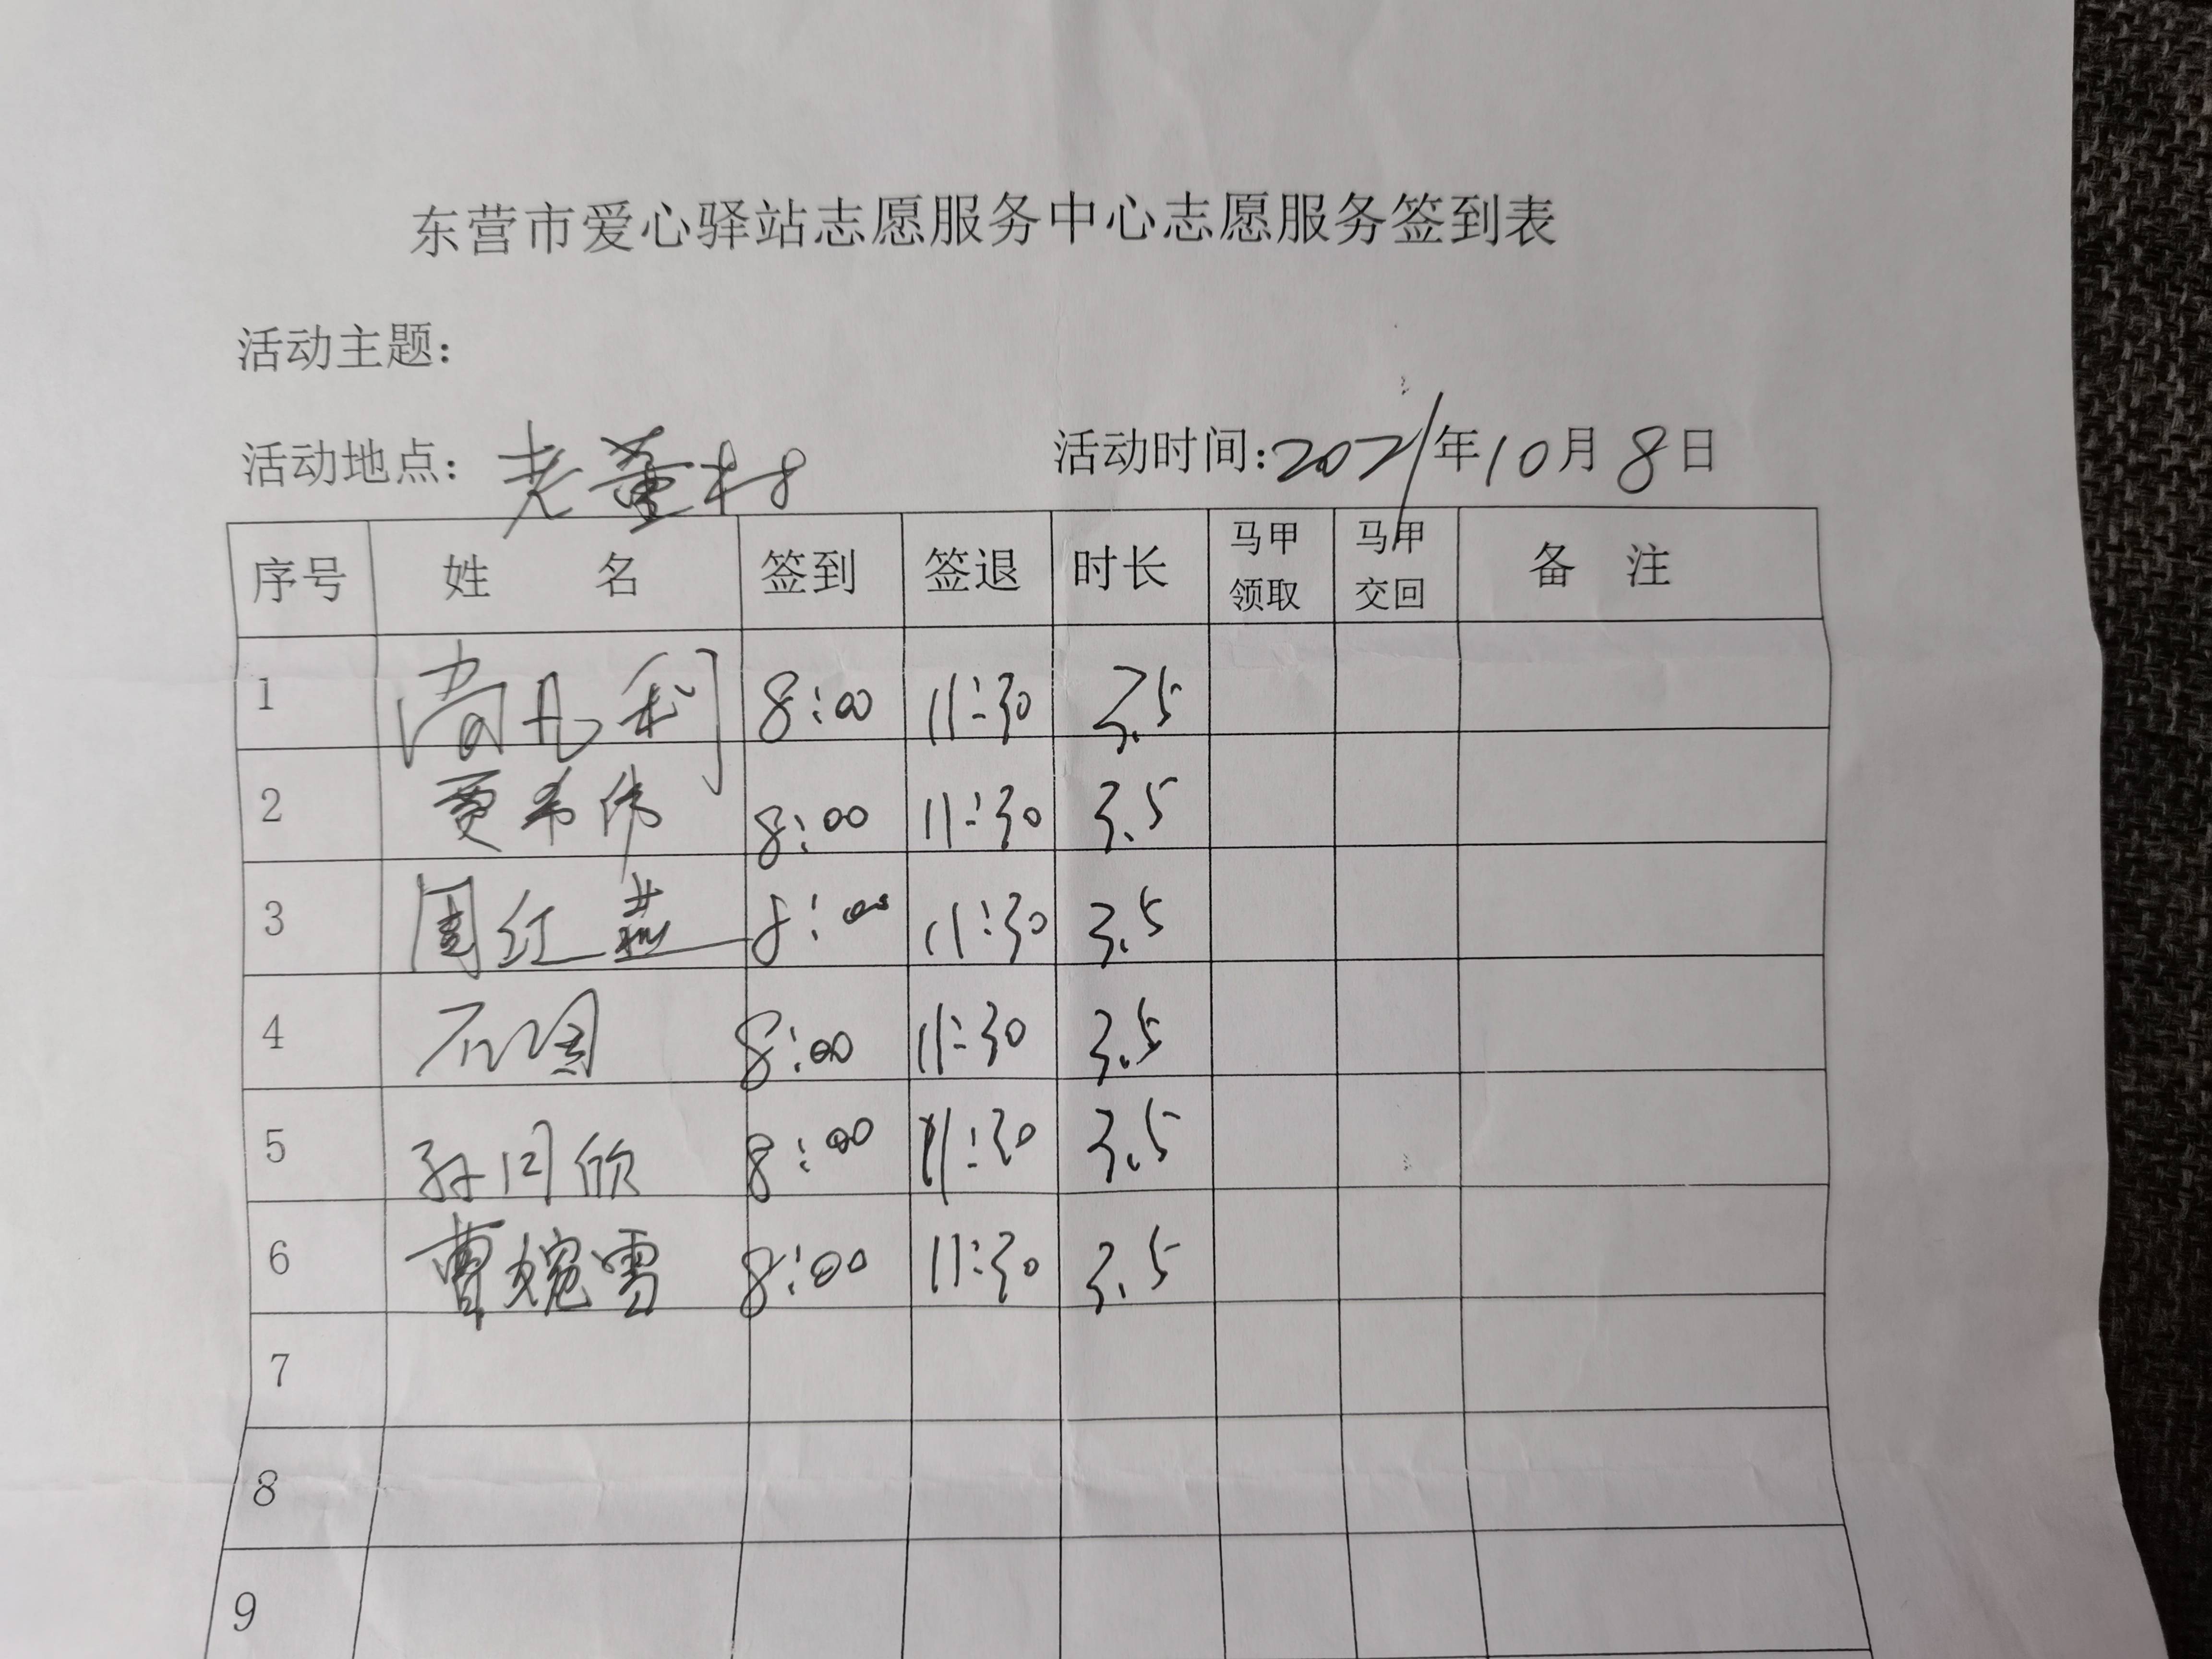 东营市爱心驿站志愿服务中心志愿服务签到表
活动主题：
活动地点：老董村 活动时间：2021年10月8日
序号 姓名 签到 签退 时长 马甲领取 马甲交回 备注
1 8:00 11:30 3.5
2 贾希伟 8:00 11:30 3.5
3 周红燕 8:00 11:30 3.5
4 8:00 11:30 3.5
5 孙闪欣 8:00 11:30 3.5
6 曹婉雪 8:00 11:30 3.5
7
8
9